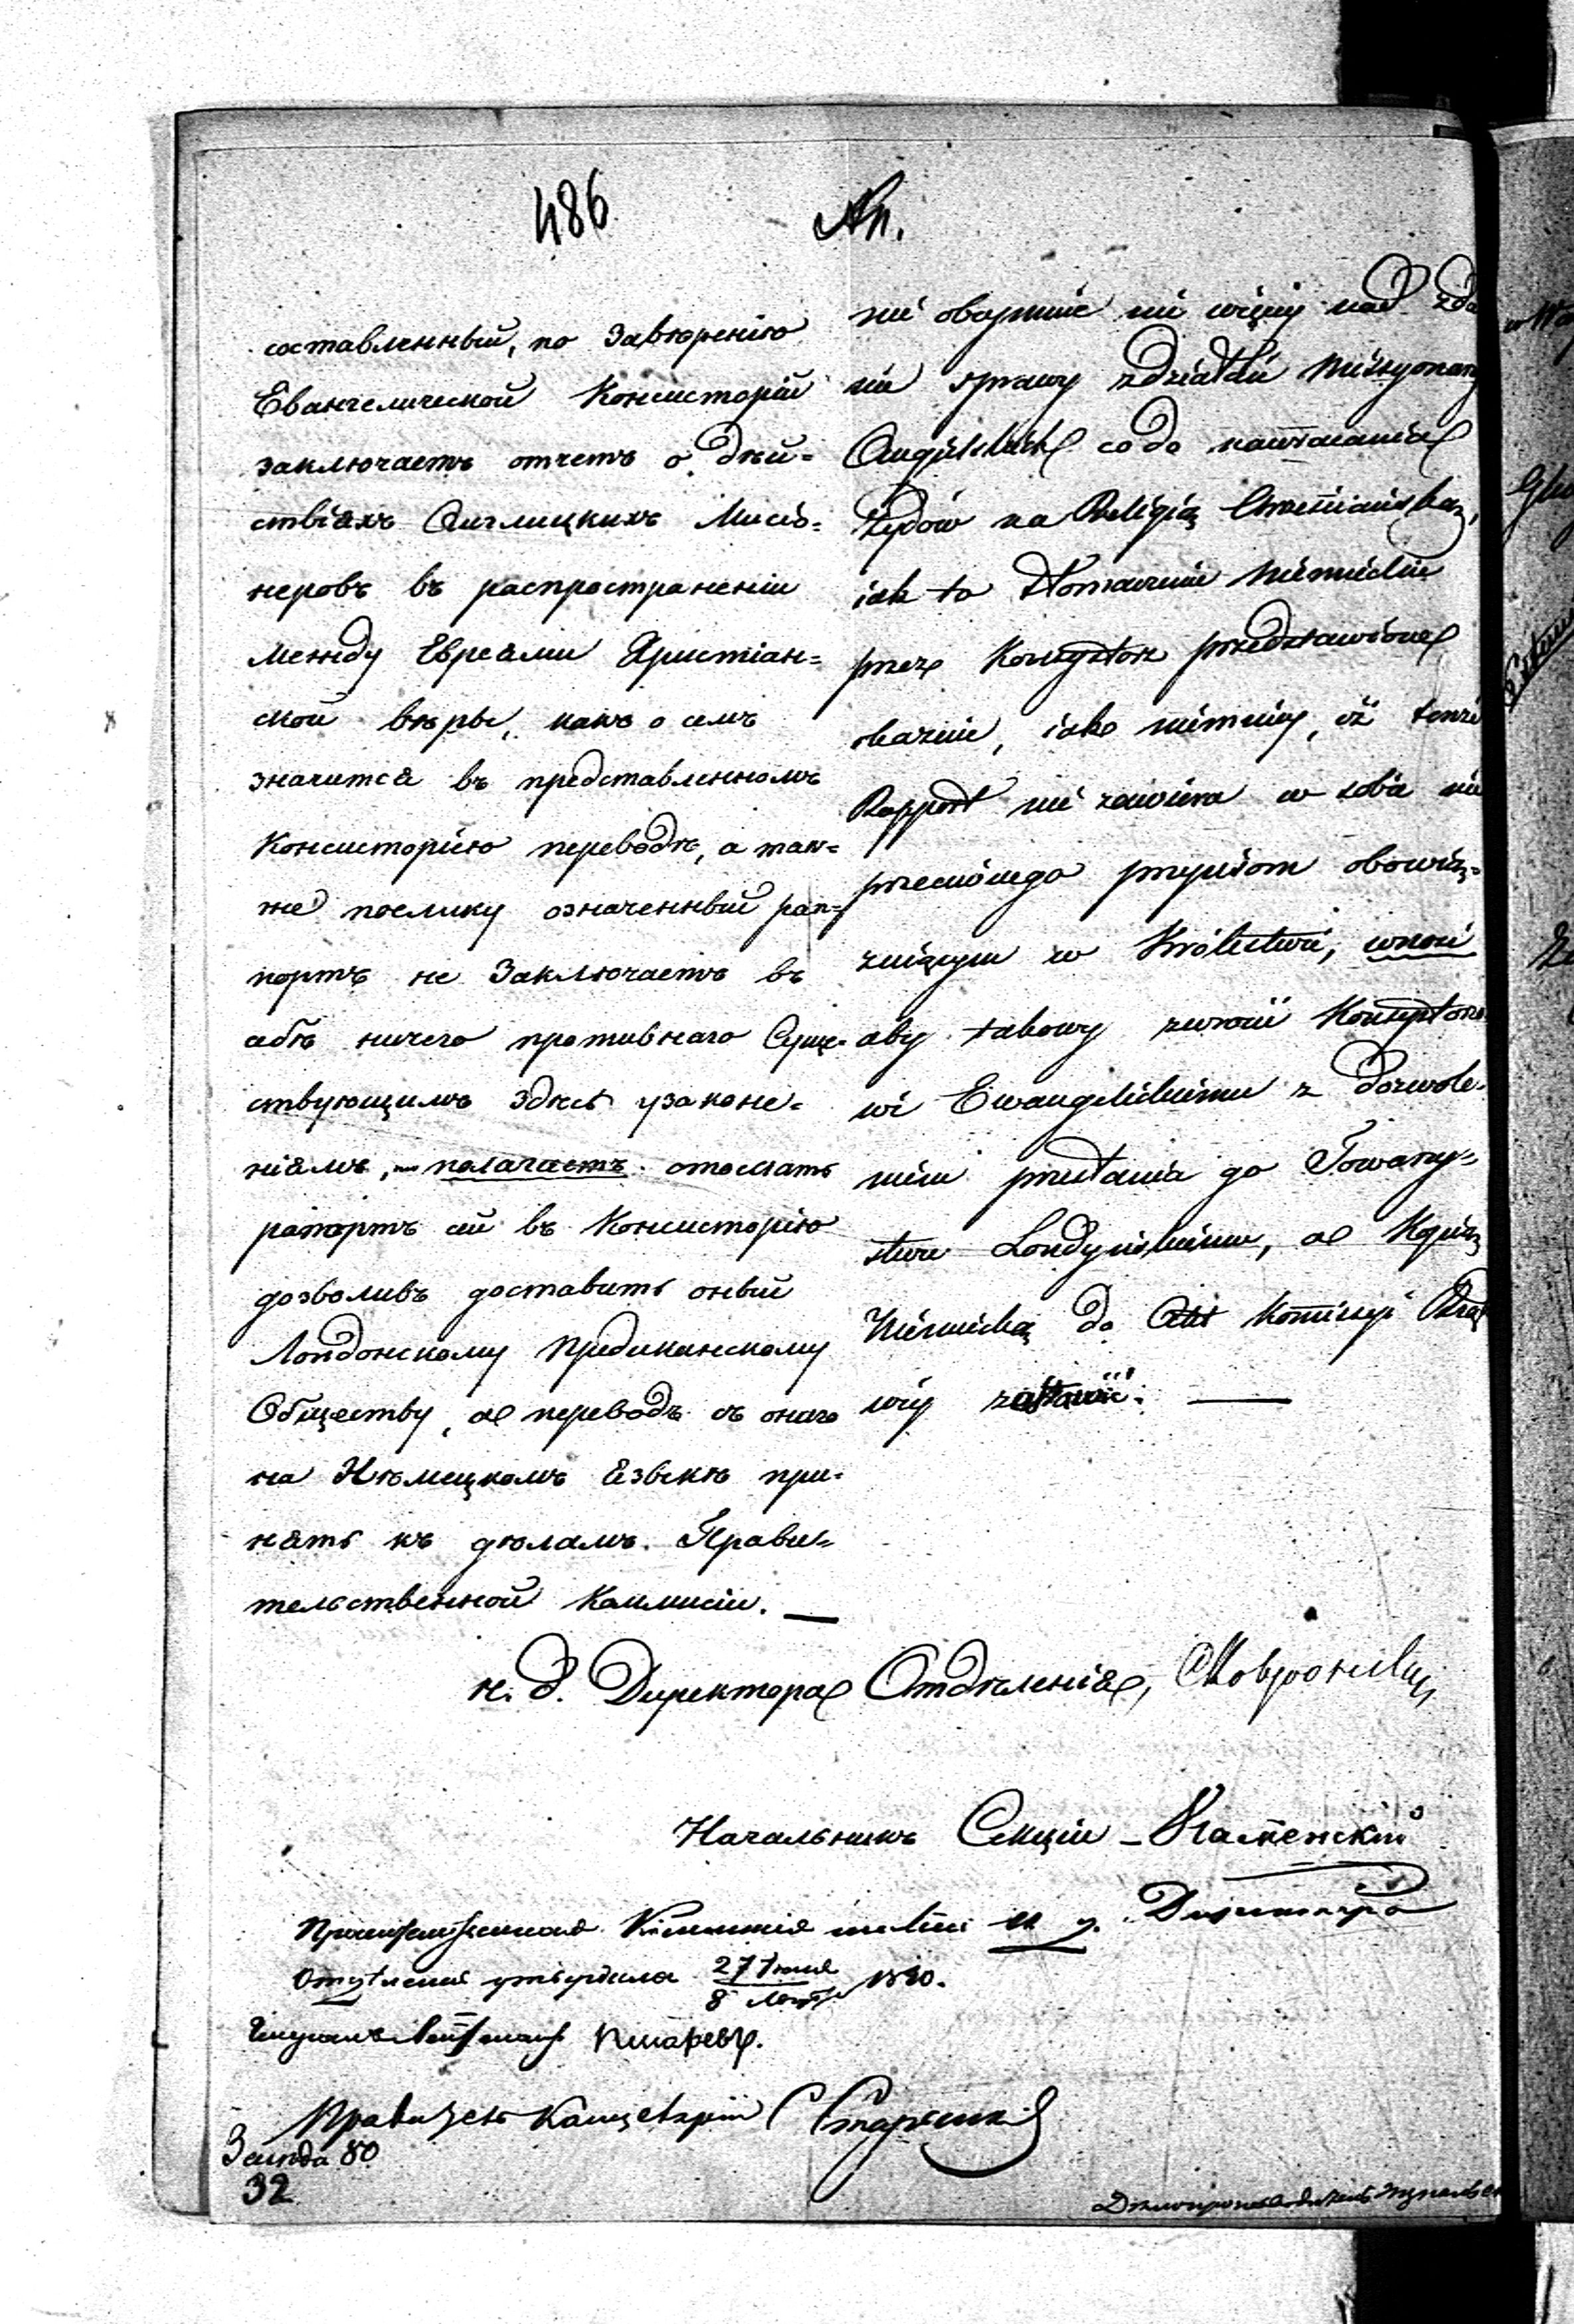 486.
составленный, по Завѣренію
Евангелической Консисторіи
заключаетъ отчетъ о дѣй=
ствіяхъ Англицкихъ Мисіо=
неровъ въ распространеніи
между Евреями Христіан=
ской вѣры, какъ о семъ
значится въ представленномъ
Консисторіею переводѣ, а так=
же поелику означенный рап=
портъ не Заключаетъ въ
себѣ ничего противнаго Суще=
ствующимъ здѣсь узаконе=
ніямъ, полагаетъ отослать
рапортъ сей въ Консисторію
дозволивъ доставить оный
Лондонскому Предиканскому
Обществу, а переводъ съ онаго
на Нѣмецкомъ языкѣ при=
нять къ дѣламъ Прави=
тельственной Коммисіи. —
nie obejmuie nic więcey nad zda
nie sprawy zdziałań Missyonarzy
Angielskich co do nawracania
Żydów na Religią Chrześciańską,
iak to tłomaczenie Niemieckie
przez Konsystorz przedstawione
okazuie, iako niemniey, iż tenże
Rapport nie zawiera w sobie nic
przeciwnego przepisom obowią=
zuiącym w Królestwie, wnosi
aby takowy zwrócić Konsystorzo
wi Ewangelickiemu z dozwole=
niem przesłania go Towarzy=
stwu Londyńskiemu, a Kopią
Niemiecką do Akt Kommissyi Rzą
wéy
и. д. Директора Отдѣленія,
Начальникъ Секціи – Каменскій
Коммисія и д. Директора
Отдѣленія утвердила 27 Іюня
8 1840.
Писаревъ.
Правитель Канцеляріи
80
32